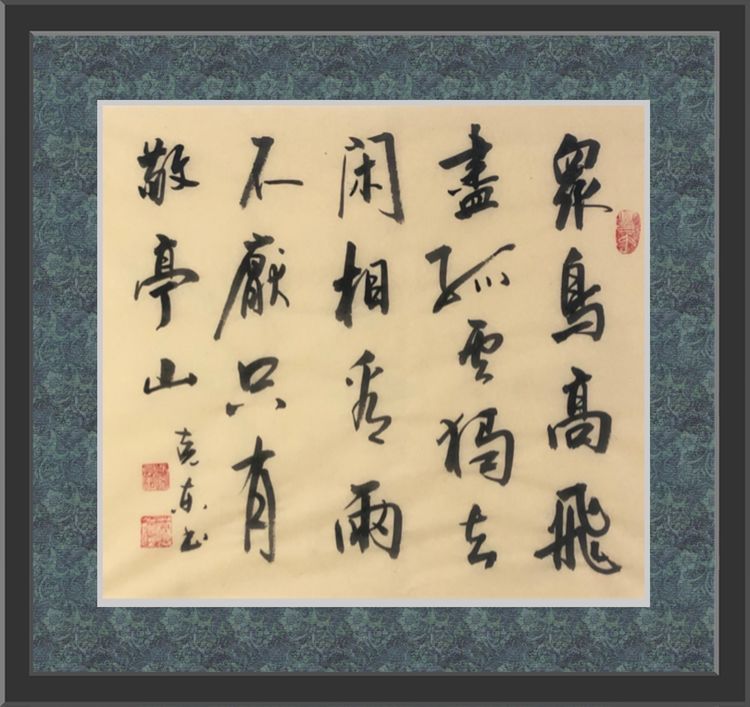 眾鳥高飛
盡孤雲獨去
閑相看兩
不厭只有
敬亭山
克東书